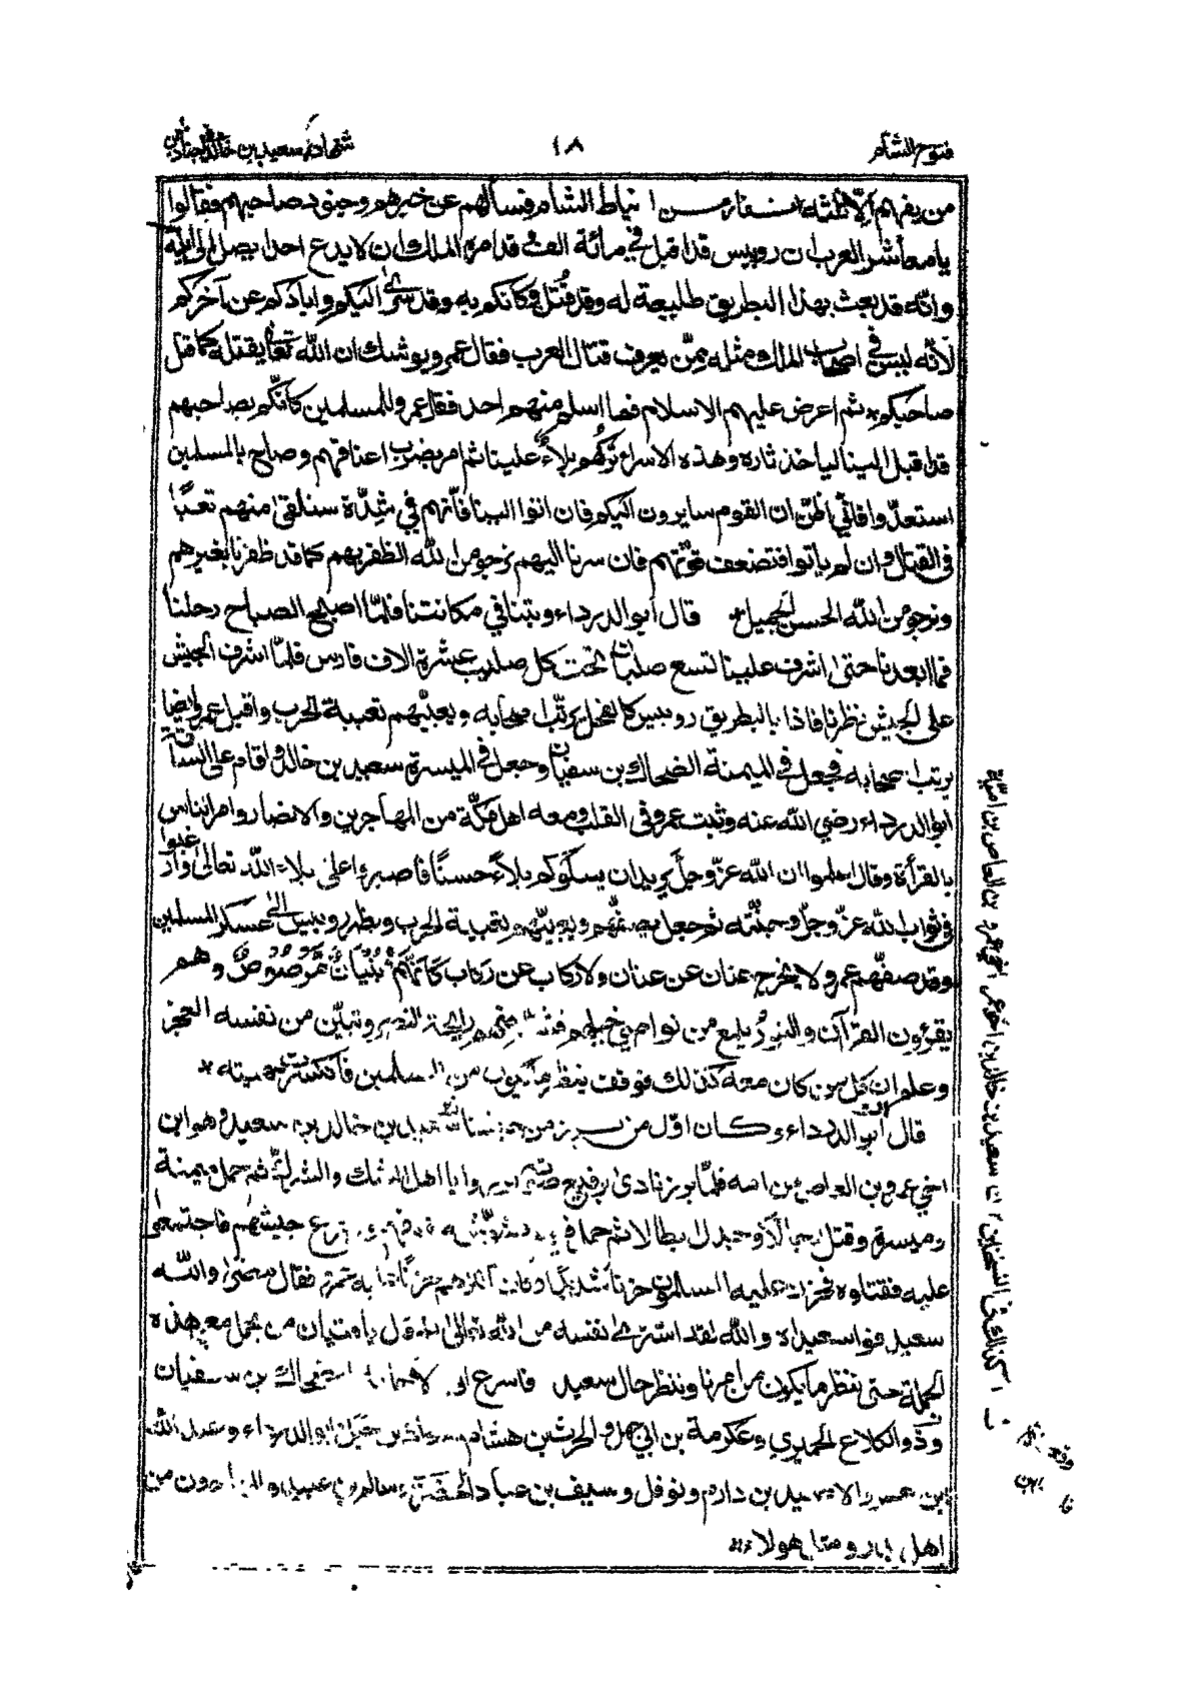 فتوح الشام
١٨
شهادة سعيد بن خالد باجنادين
من يفهم الا ثلثه نفار من انباط الشام فسألهم عن خبرهم وجيوش صاحبهم فقالوا
يا معاشر العرب ان روبيس قد اقبل في مائة الف قد امره الملك ان لا يدع احدا يصل الى ايلة
وانّه قد بعث بهذا البطريق طليعة له وقد قُتل وكانكم به وقد سرى اليكم وابادكم عن آخركم
لأنّه ليس في اصحاب الملك مثله ممّن يعرف قتال العرب فقال عمرو يوشك ان الله تعالى يقتله كما قتل
صاحبكم * ثم اعرض عليهم الاسلام فما اسلم منهم احد فقال عمرو للمسلمين كأنّكم بصاحبهم
قد اقبل الينا لياخذ ثاره وهذه الاسراء تركهم بلاءٌ علينا ثم امر بضرب اعناقهم وصاح بالمسلمين
استعدّوا فانّي اظنّ ان القوم سايرون اليكم فان اتوا الينا فانّهم في شدّة سنلقى منهم تعبًا
في القتال وان لم ياتوا فتضعف قوّتهم فان سرنا اليهم نرجو من الله الظفر بهم كما قد ظفرنا بغيرهم
ونرجو من الله الحسن الجميل * قال أبو الدرداء وبتنا في مكانتنا فلمّا اصبح الصباح رحلنا
فما ابعدنا حتى اشرف علينا تسع صلبان تحت كل صليب عشرة الاف فارس فلمّا اشرف الجيش
على الجيش نظرنا فاذا بالبطريق روبيس كالفحل يرتّب صحابه ويعبّيهم تعبية الحرب واقبل عمرو ايضا
يرتب صحابه فجعل في الميمنة الضحاك بن سفيان وجعل في الميسرة سعيد بن خالد واقام على الساقة
ابو الدرداء رضي الله عنه وثبت عمرو في القلب ومعه اهل مكّة من المهاجرين والانصار وامر الناس
بالقرأة وقال اعلموا ان الله عزّ وجلّ يريد ان يبلوكم بلاءً حسنًا فاصبروا على بلاء الله تعالى وارغبوا
في ثواب الله عزّ وجلّ وجنّته ثم جعل يصفّهم ويعبّيهم تعبية الحرب ونظر روبيس الى عسكر المسلمين
وقد صفّهم عمرو لا يخرج عنان عن عنان ولا ركاب عن ركاب كَاَنَّهُمْ بُنْيَانٌ مَّرْصُوْصٌ وهم
يقرؤن القرآن والنور يلمع من نواصي خيلهم رايحة النصر وتبيّن من نفسه العجز
وعلم ان كل من كان معه كذلك فوقف ينظر من المسلمين فانكسرت حميته *
قال أبو الدرداء وكان اوّل من برز من جيشنا بن خالد بن سعيد وهو ابن
اخي عمرو بن العاص من امه فلمّا برز نادى برفيع صوته يا اهل الشك والشرك ثم حمل ميمنة
وميسرة وقتل رجالاً وجندل ابطالا ثم حمل جيشهم فاجتمعوا
عليه فقتلوه فحزن عليه المسلمون حزنا شديدًا وكان اكثرهم حزنًا به عمرو فقال والله
سعيد فوا سعيداه والله لقد اشترى نفسه من الله تعالى ثم قال يا فتيان من يحمل معي هذه
الحملة حتى ننظر ما يكون من امرنا وننظر حال سعيد فاسرع الضحاك بن سفيان
وذو الكلاع الحميري وعكرمة بن ابي جهل والحرث بن هشام ومعاذ بن جبل وابو الدرداء وعبد الله
بن عمر بن دارم ونوفل وسيف بن عباد الحضرمي وسالم بن عبيد من
اهل بدر ومثل هولاء
كذلك في النسختين اما سعيد بن خالد بن اخو عمرو اخي عمرو بن العاص بن اميّة